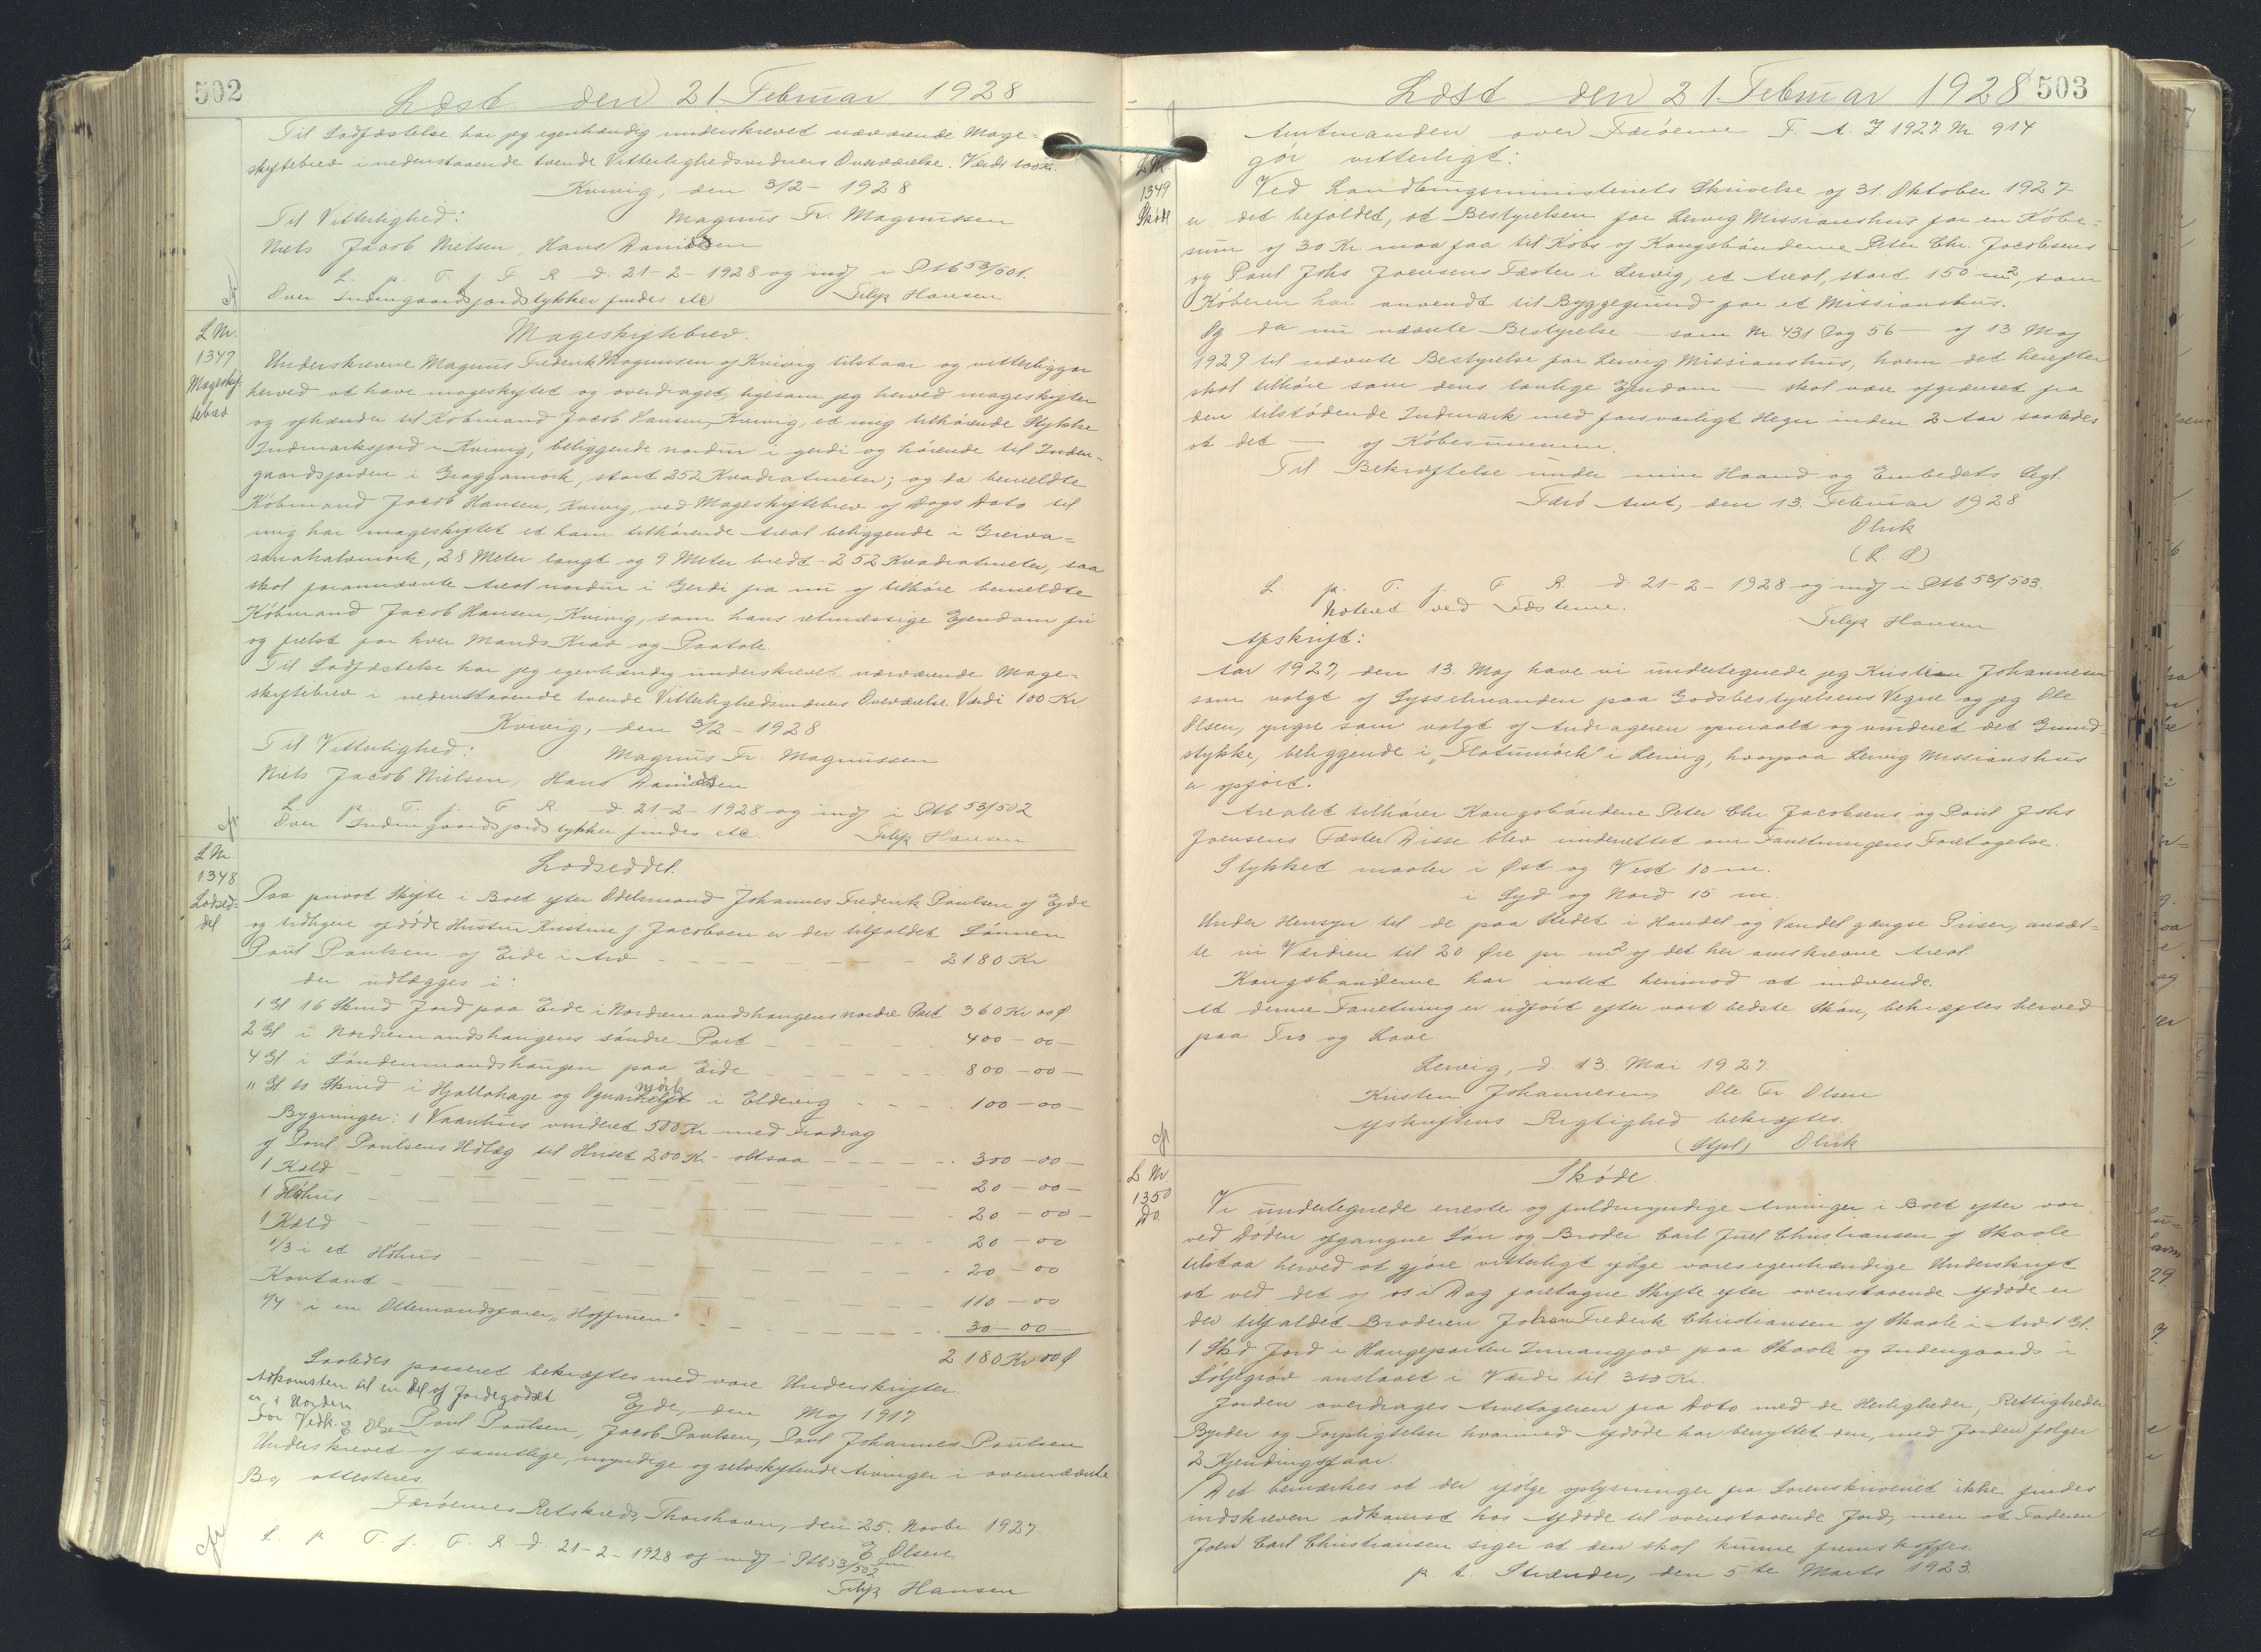 502
Læst den 21. Februar 1928
Til Ladfæstelse har jeg egenhændig underskrevet nærværende Mage-
skiftebrev i nedenstaaende tvende Vitterlighedsvidners Overværelse. Værdi 100 Kr.
Kvivig, den 3/2 - 1928
Til Vitterlighed: Magnus Fr. Magnussen
Niels Jacob Nielsen, Hans Danielsen
L. p. T. f. F. R. d. 21-2-1928 og indf i Ptb 53/501.
Over Indengaardsjordstykker findes etc Filip Hansen
L Nr.
1347
Mageskif-
tebrev
Mageskiftebrev.
Underskrevne Magnus Frederik Magnussen af Kvivig tilstaar og vitterliggør
herved at have mageskiftet og overdraget, ligesom jeg herved mageskifter
og afhænder til Købmand Jacob Hansen, Kvivig, et mig tilhørende Stykke
Indmarksjord i Kvivig, beliggende nordur i gerdi og hørende til Inden-
gaardsjorden i , stort 252 Kvadratmeter; og da bemeldte
Købmand Jacob Hansen, Kvivig, ved Mageskiftebrev af Dags Dato til
mig har mageskiftet et ham tilhørende Areal beliggende i
28 Meter langt og 9 Meter bredt - 252 Kvadratmeter, saa
skal forannævnte Areal nordur i Gerdi fra nu af tilhøre bemeldte
Købmand Jacob Hansen, Kvivig, som hans retmæssige Ejendom fri
og frelst for hver Mands Krav og Paatale.
Til Ladfæstelse har jeg egenhændig underskrevet nærværende Mage-
skiftebrev i nedenstaaende tvende Vitterlighedsvidners Overværelse. Værdi 100 Kr
Kvivig, den 3/2 - 1928.
Til Vitterlighed: Magnus Fr. Magnussen
Niels Jacob Nielsen, Hans Danielsen
L. p. T. f. F. R. d 21-2-1928 og indf i Ptb 53/502
Over Indengaardsjordstykker findes etc. Filip Hansen
L Nr.
1348
Lodsed-
del
Lodseddel.
Paa privat Skifte i Boet efter Odelsmand Johannes Frederik Poulsen af Ejde
og tidligere afdøde Hustru Kristine f. Jacobsen er der tilfaldet Sønnen
Poul Poulsen af Eide i Arv - - - 2180 Kr
der udlægges i:
1 Gl 16 Skind Jord paa Eide i Nordremandshaugens nordre Part 360 Kr 00 Ø
2 Gl i Nordremandshaugens søndre Part - - - 400 - 00 -
4 Gl i Søndenmandshaugen paa Eide - - - 800 - 00 -
" Gl 10 Skind i Hjallahage og mørk i Eldevig - - - 100 - 00 -
Bygninger: 1 Vaanhus vurderet 500 Kr med Fradrag
af Poul Poulsens Udlæg til Huset 200 Kr - altsaa - - - 300 - 00 -
1 Kald - - - 20 - 00 -
1 Høhus - - - 20 - 00 -
1 Kald - - - 20 - 00
1/3 i et Høhus - - - 20 - 00
Kontant - - - 110 - 00
1/4 i en Ottemandsfarer, - - - 30 - 00 -
2180 Kr 00 Ø
Saaledes passeret bekræftes med vore Underskrifter.
Adkomsten til en Del af Jordegodset
er i Orden. Ejde, den Maj 1917
For Vedk. E Olsen Poul Poulsen, Jacob Poulsen, Poul Johannes Poulsen
Underskrevet af samtlige, myndige og selvskiftende Arvinger i ovennævnte
Bo, attesteres.
Færøernes Retskreds, Thorshavn, den 25. Novbr 1927.
E Olsen
L. p T. f. F. R d. 21-2-1928 og indf i Ptb 53/502
Filip Hansen
503
Læst den 21. Februar 1928
Amtmanden over Færøerne F. A. J 1927 Nr 914
gör vitterligt:
L Nr
1349
Skøde
Ved Landbrugsministeriets Skrivelse af 31. Oktober 1927
er det befaldet, at Bestyrelsen for Lervig Missionshus for en Købe-
sum af 30 Kr maa faa til Købs af Kongsbønderne Peter Chr. Jacobsens
og Poul Johs Joensens Fæster i Lervig, et Areal, stort 150 m², som
Køberen har anvendt til Byggegrund for et Missionshus.
Og da nu nævnte Bestyrelse - som Nr. 431 Pag 56 - af 13 Maj
1927 til nævnte Bestyrelse for Lervig Missionshus, hvem det herefter
skal tilhøre som dens lovlige Ejendom - skal være afgrænset fra
den tilstødende Indmark med forsvarligt Hegn inden 2 Aar saaledes
at det - af Købesummen.
Til Bekræftelse under min Haand og Embedets Segl.
Færø Amt, den 13. Februar 1928
Olrik
(L. S)
L. p. T. f. F R. d. 21-2-1928 og indf i Ptb 53/503.
Noteret ved Fæsterne. Filip Hansen
Afskrift:
Aar 1927, den 13. Maj have vi undertegnede jeg Kristian Johannesen
som valgt af Sysselmanden paa Godsbestyrelsens Vegne og jeg Ole
Olsen, yngre som valgt af Andrageren opmaalt og vurderet det Grund-
stykke, beliggende i „Flatumörk" i Lervig, hvorpaa Lervig Missionshus
er opført.
Arealet tilhører Kongsbönderne Peter Chr Jacobsens og Poul Johs
Joensens Fæster. Disse blev underrettet om Forretningens Foretagelse.
Stykket maaler i Øst og Vest 10 m.
i Syd og Nord 15 m.
Under Hensyn til de paa Stedet i Handel og Vandel gængse Priser, ansæt-
te vi Værdien til 20 Øre pr m² af det her omskrevne Areal.
Kongsbønderne har intet herimod at indvende.
At denne Forretning er udført efter vort bedste Skön, bekræftes herved
paa Tro og Love.
Lervig, d. 13. Mai 1927.
Kristen Johannesen, Ole Fr. Olsen
Afskriftens Rigtighed bekræftes
(Stpl) Olrik
L Nr
1350
Do.
Skøde
Vi undertegnede eneste og fuldmyndige Arvinger i Boet efter vor
ved Døden afgangne Søn og Broder Carl Juel Christiansen af Skaale
tilstaa herved at gjøre vitterligt ifølge vores egenhændige Underskrift
at ved det af os i Dag foretagne Skifte efter ovenstaaende Afdøde er
der tilfaldet Broderen Johan Frederik Christiansen af Skaale i Arv 1 Gl.
1 Skd Jord i Haugeparten Innangjov paa Skaale og Indengaards i
anslaaet i Værdi til 310 Kr.
Jorden overdrages Arvetageren fra Dato med de Herligheder, Rettigheder
Byrder og Forpligtelser hvormed Afdøde har benyttet den, med Jorden følger
2 Kjendingsfaar
Det bemærkes at der ifølge oplysninger fra Sorenskriveriet ikke findes
indskreven adkomst hos Afdøde til ovenstaaende Jord, men at Faderen
Joen Carl Christiansen siger at den skal kunne fremskaffes.
p. t. Strænder, den 5te Marts 1923.